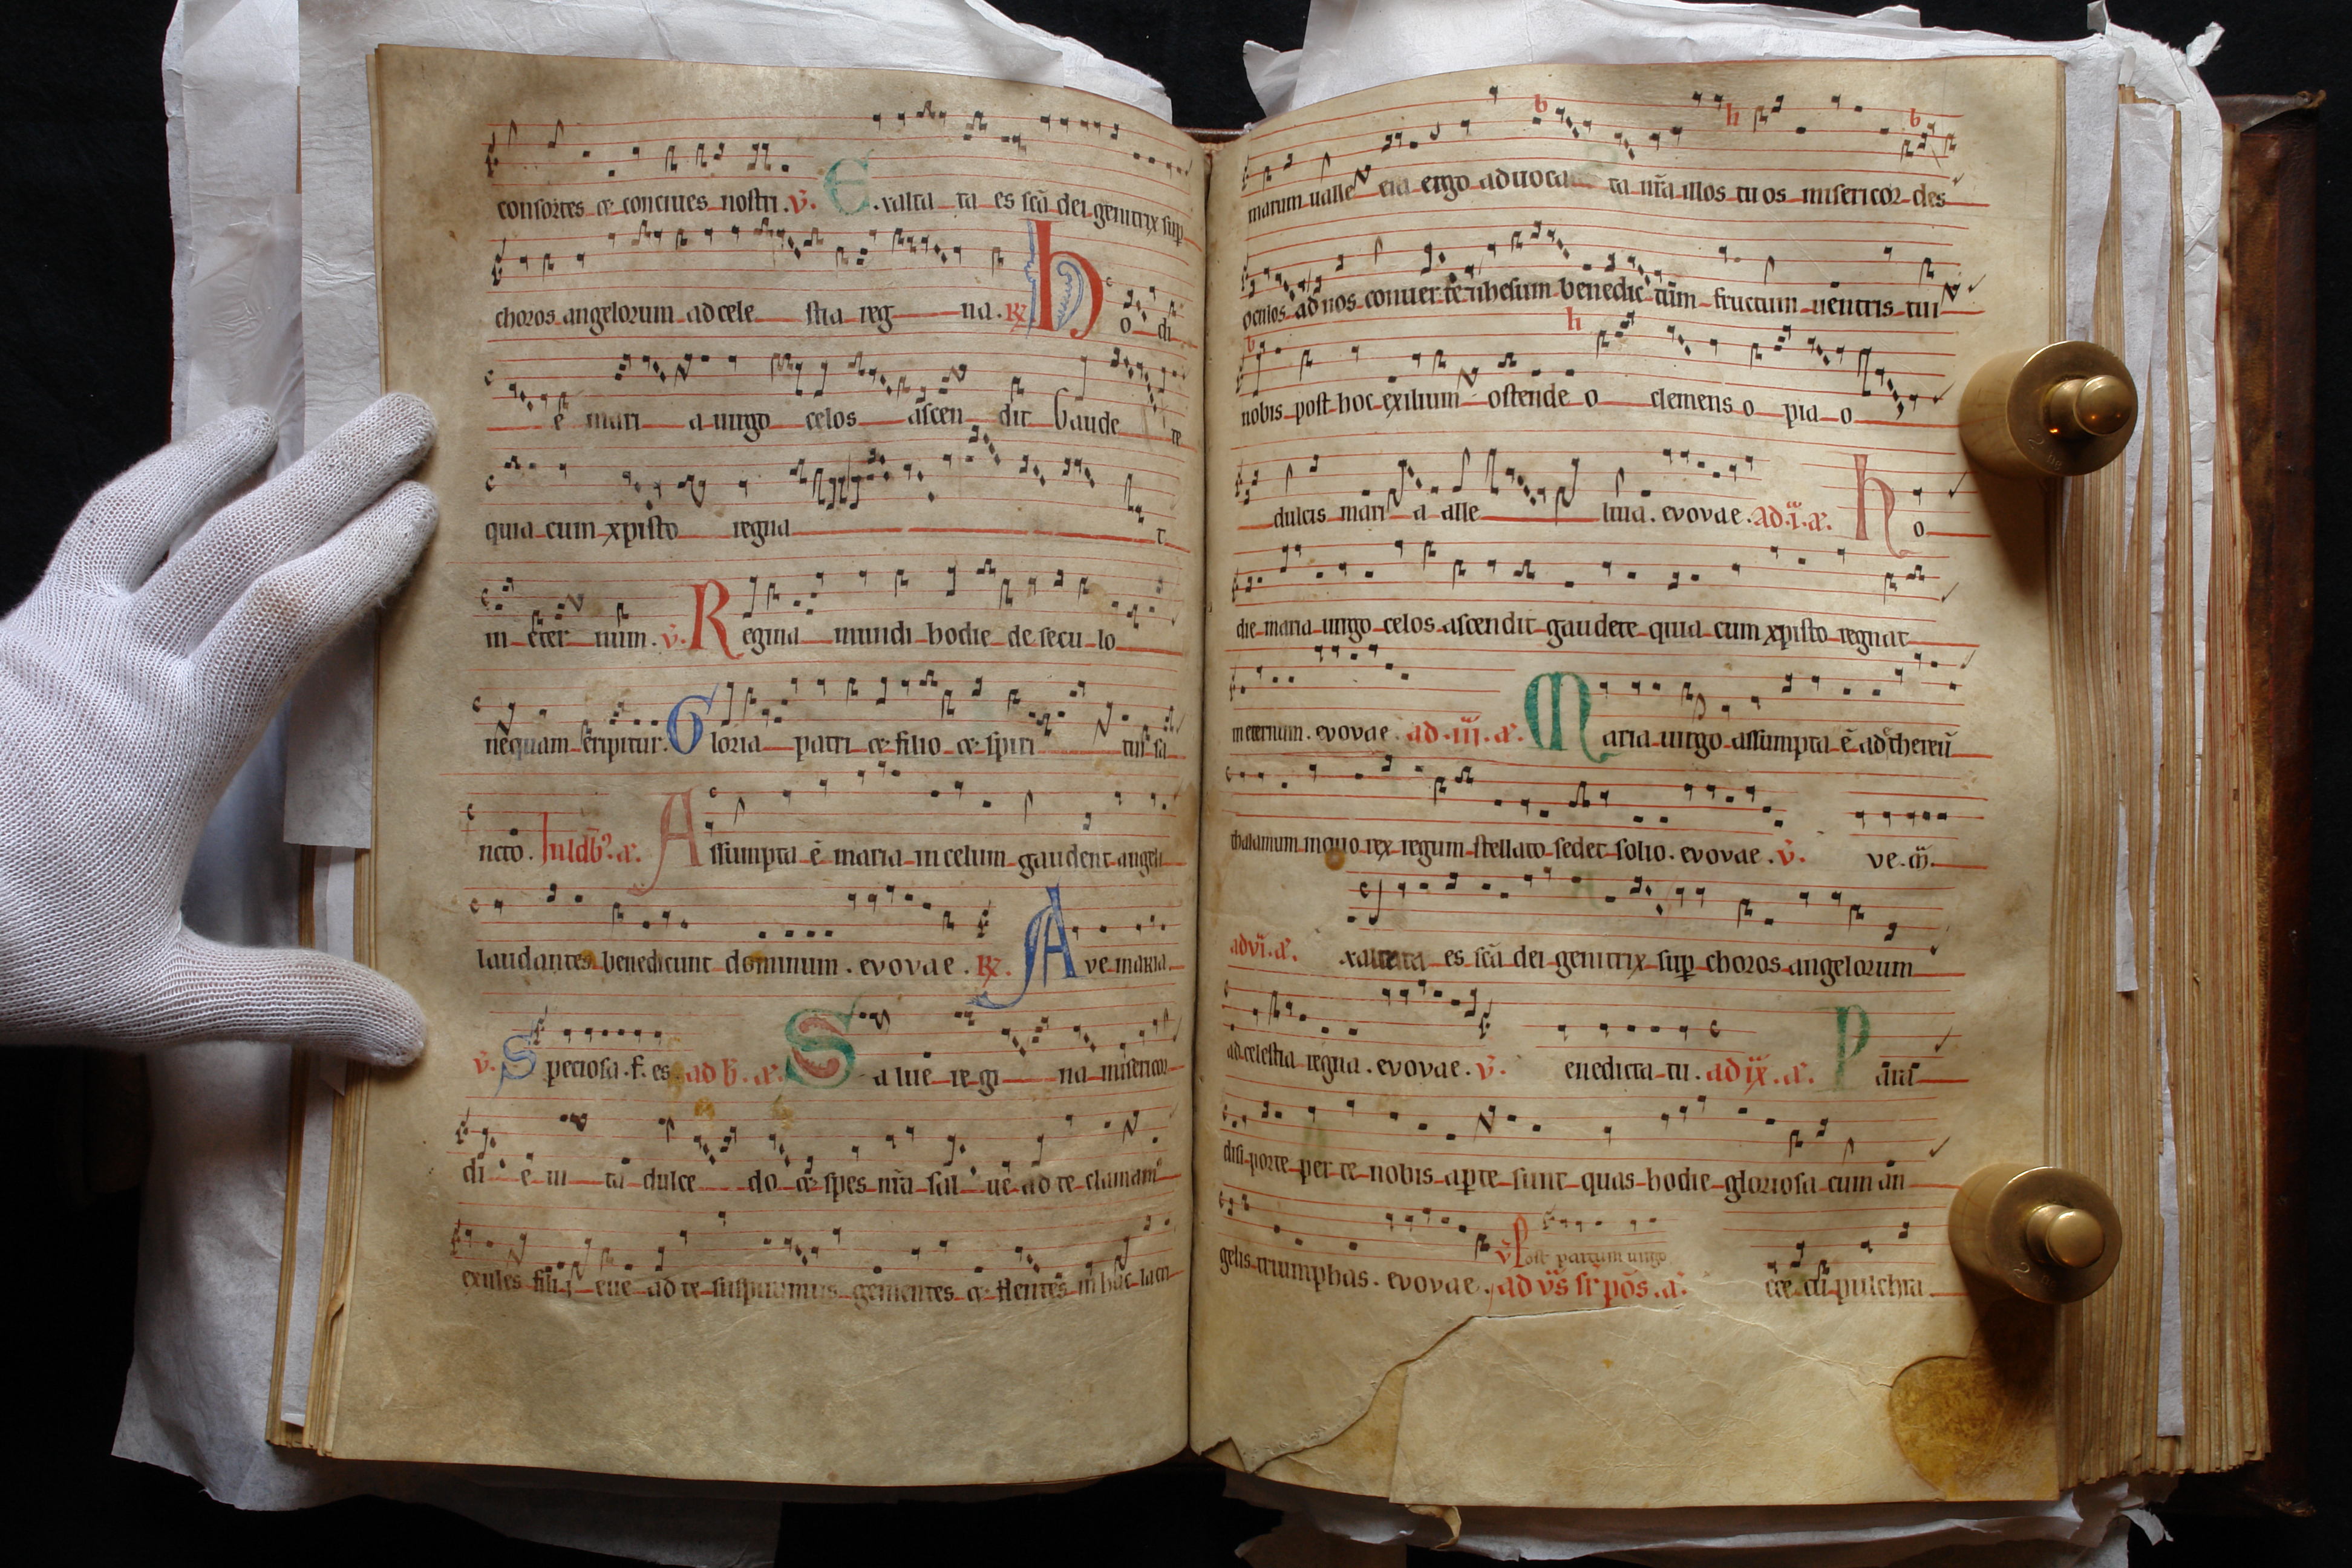 consortes et conciues nostri. V̄. E.xalta ta es sc̄a dei genitrix sup̱
choros angelorum ad cele stia reg na. R̸ h o di
ē mari a uirgo celos ascen dit Gaude te
quia cum xp̱isto regna t
in eter num. v̄. R egina mundi hodie de secu lo
nequam eripitur. G loria patri et filio et spiri tui sa
ncto. In ld'b'. a. A ssumpta ē maria in celum gaudent angeli
laudantes benedicunt dominum. evovae. R̸. A ve maria.
v̄. S peciosa. f. es ad b. a. S a lue re gi na misericor
di e ui ta dulce do et spes nr̄a sal ue ad te clamam'
exules filij eue ad te suspiramus gementes et flentes in hac lacri
marum ualle eia ergo aduoca ta nr̄a illos tuos misericor des
oculos ad nos conuerte et ihesum benedic tum fructum uentris tui
nobis post hoc exilium ostende o clemens o pia o
dulcis mari a alle luia. evovae. ad. i. a. h o
die maria uirgo celos ascendit gaudete quia cum xp̱isto regnat
in eternum. evovae. ad. iij. a. M aria uirgo assumpta ē ad ethereū
thalamum in quo rex regum stellato sedet solio. evovae. v̄. ve. m̄.
ad vi. a. .xaltata es sc̄a dei genitrix sup̱ choros angelorum
ad celestia regna. evovae. v̄. enedicta tu. ad ix. a. P arad
disi porte per te nobis ap̱te sunt quas hodie gloriosa cum an
gelis triumphas. evovae. v̄ Post partum uirgo ad v̄s sr̄ pōs. a. cce tu pulchra